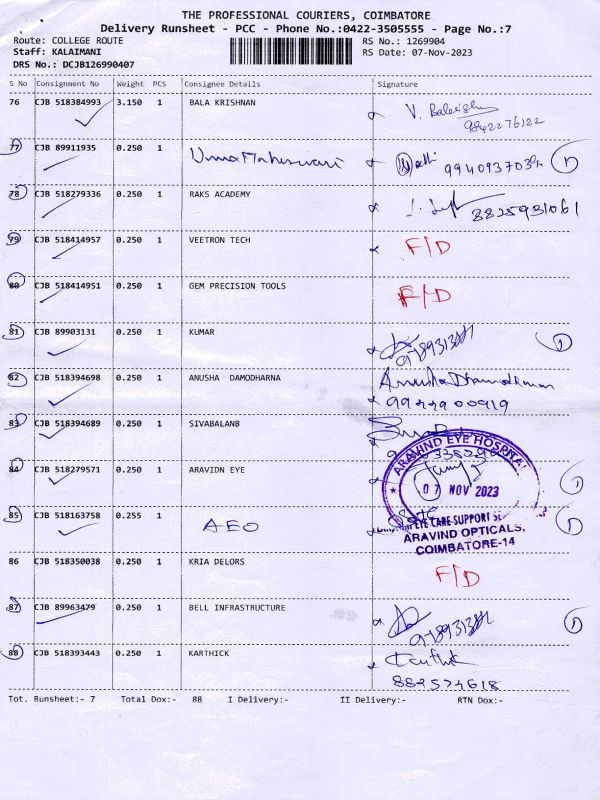 THE PROFESSIONAL COURIERS, COIMBATORE
Delivery Runsheet - PCC - Phone No.:0422-3505555 - Page No.:7
Route: COLLEGE ROUTE RS No.: 1269904
Staff: KALAIMANI RS Date: 07-Nov-2023
DRS No.: DCJB126990407
S No Consignment No Weight PCS Consignee Details Signature
76 CJB 518384993 3.150 1 BALA KRISHNAN V. Balakrishnan
9842276122
77 CJB 89911935 0.250 1 Uma Maheswari
78 CJB 518279336 0.250 1 RAKS ACADEMY 8825931061
79 CJB 518414957 0.250 1 VEETRON TECH F/D
80 CJB 518414951 0.250 1 GEM PRECISION TOOLS F/D
81 CJB 89903131 0.250 1 KUMAR
82 CJB 518394698 0.250 1 ANUSHA DAMODHARNA Anusha Dhamodharan
83 CJB 518394689 0.250 1 SIVABALANB
84 CJB 518279571 0.250 1 ARAVIDN EYE
ARAVIND EYE HOSPITAL
07 NOV 2023
85 CJB 518163758 0.255 1 AEO
EYE CARE SUPPORT
ARAVIND OPTICALS,
COIMBATORE-14
86 CJB 518350038 0.250 1 KRIA DELORS F/D
87 CJB 89963479 0.250 1 BELL INFRASTRUCTURE
88 CJB 518393443 0.250 1 KARTHICK Karthik
Tot. Runsheet:- 7 Total Dox:- 88 I Delivery:- II Delivery:- RTN Dox:-